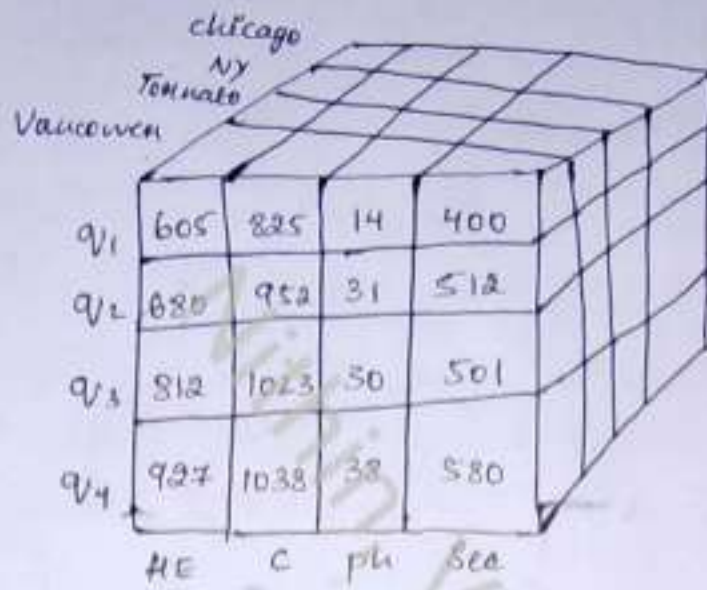 chicago
NY
Toronato
Vancouver
q1 605 825 14 400
q2 680 952 31 512
q3 812 1023 30 501
q4 927 1038 38 580
HE C ph Sec
Nithin